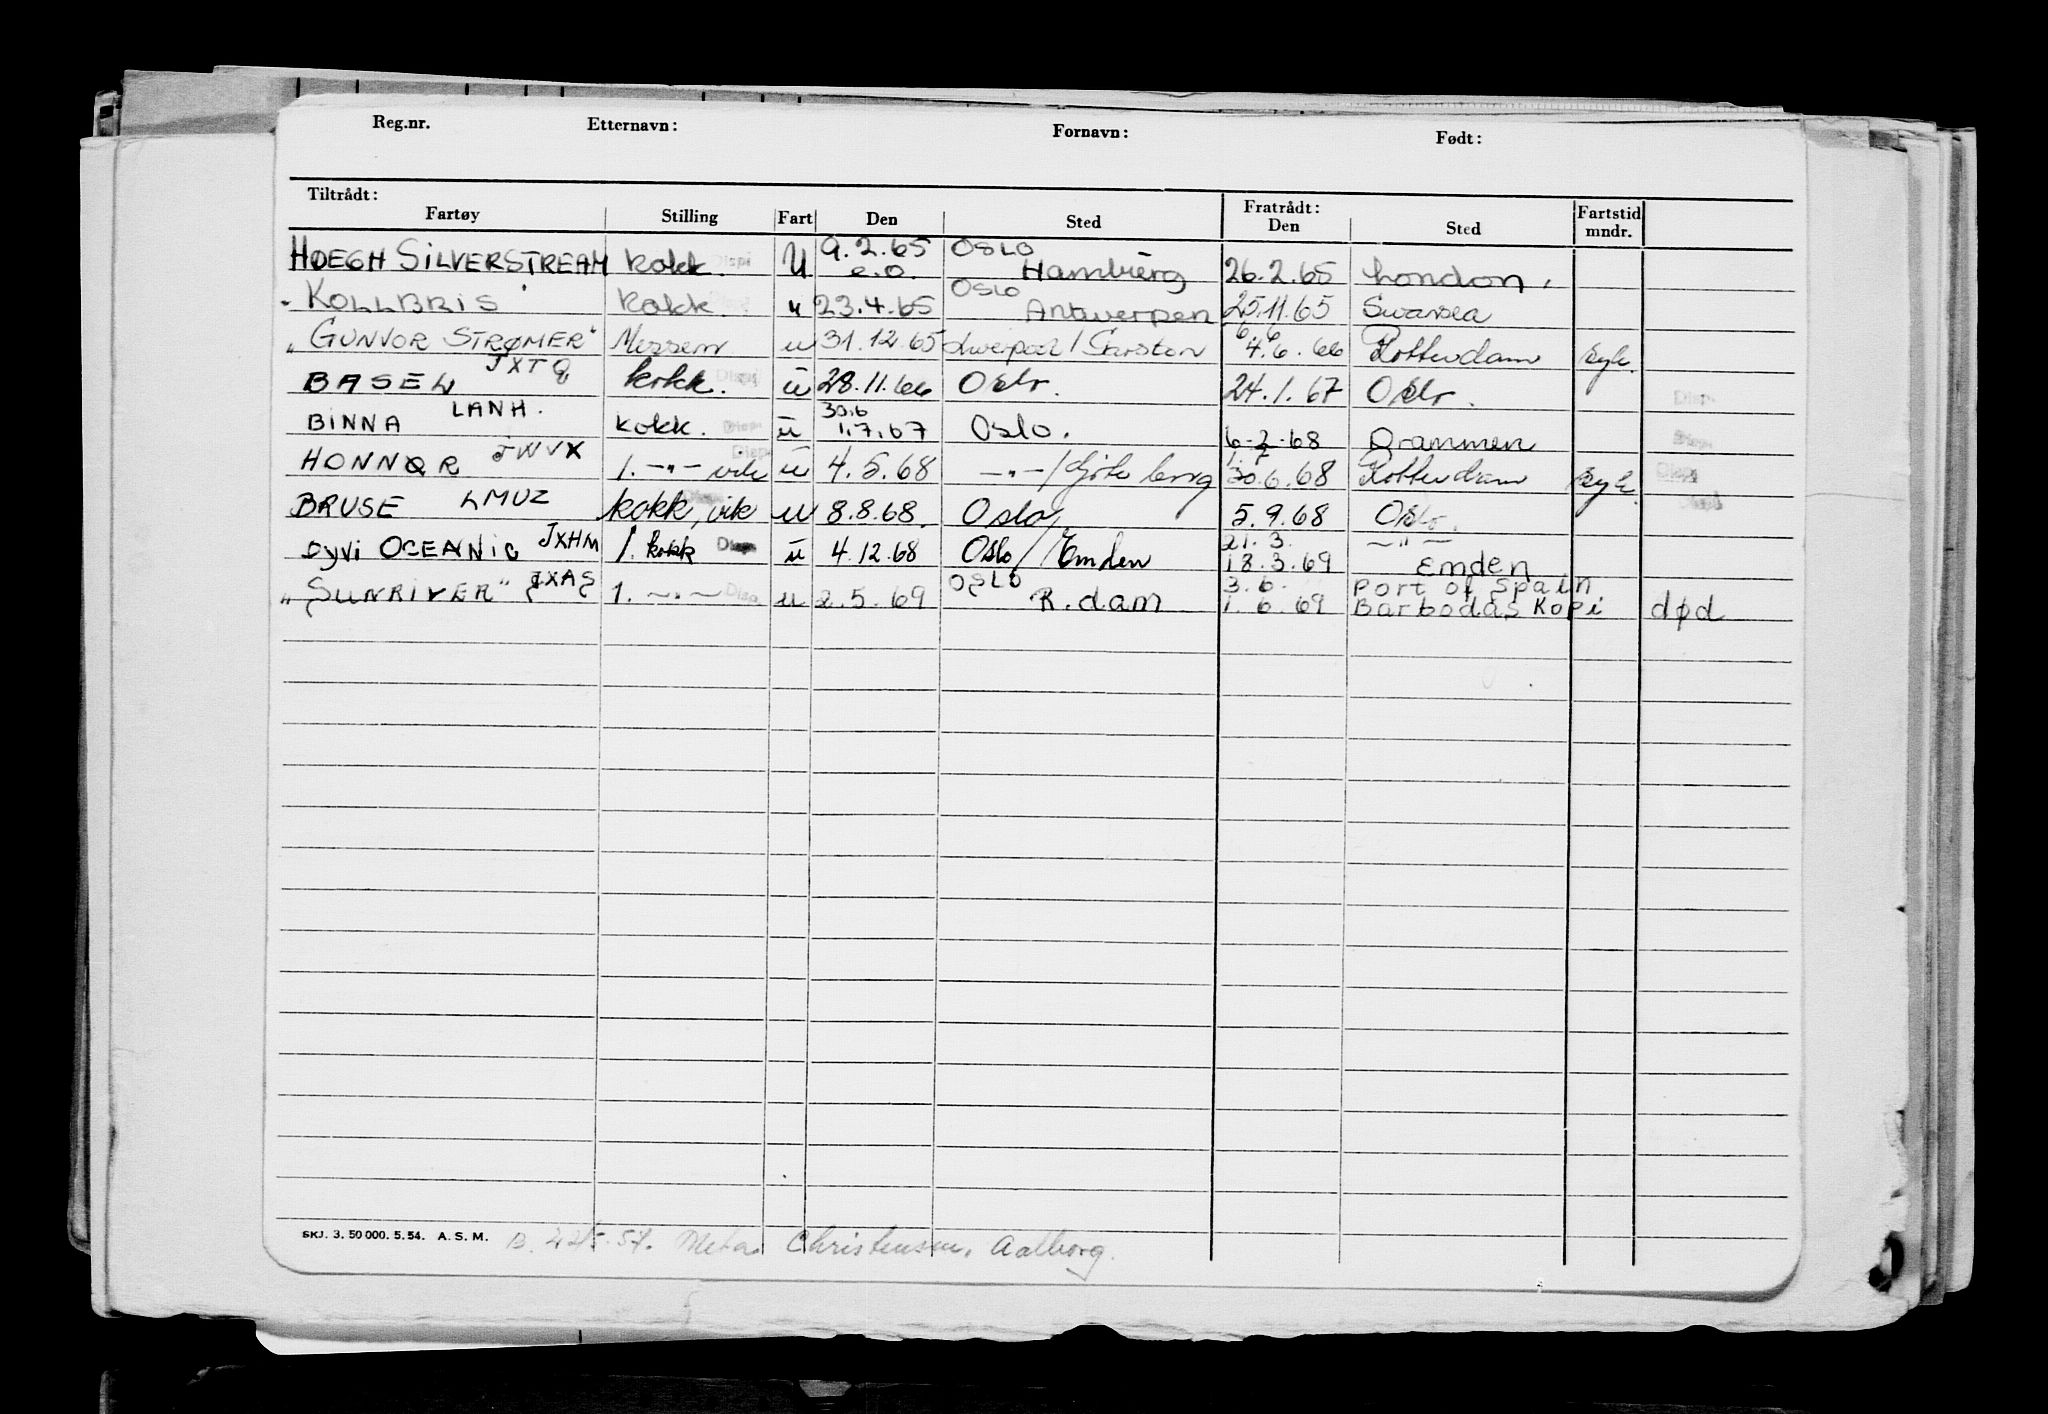 Reg.nr. Etternavn: Fornavn: Født:
Tiltrådt: Fratrådt:
Fartøy Stilling Fart Den Sted Den Sted Fartstid mndr.
HOEGH SILVERSTREAM kokk. Dispi U 9.2.65 e.o. OSLO Hamburg 26.2.65 London.
KOLLBRIS kokk. u 23.4.65 OSLO Antwerpen 25.11.65 Swansea
"GUNVOR STRØMER" Messem u 31.12.65 Liverpool / Garston 6/6 4.6.66 Rotterdam syk.
BASEN JXTQ kokk. Dispi u 28.11.66 Oslo. 24.1.67 Oslo. Disp.
BINNA LANH. kokk. Dispi u 30.6 1.7.67 Oslo. 6.2.68 Drammen Disp.
HONNØR JWVX 1. -"- vik Disp u 4.5.68 -"- / Göteborg 1.7 30.6.68 Rotterdam syk. Disp
BRUSE LMUZ kokk, vik u 8.8.68. Oslo 5.9.68 Oslo.
DYVI OCEANIC JXHM 1. kokk Disp u 4.12.68 Oslo / Emden 21.3. 18.3.69 -"- Emden
"SUNRIVER" JXAS 1. -"- Disp u 2.5.69 OSLO R.dam 3.6. 1.6.69 Port of Spain Barbodas Kopi død
SKJ. 3. 50 000. 5. 54. A. S. M. Meta Christensen, Aalborg.